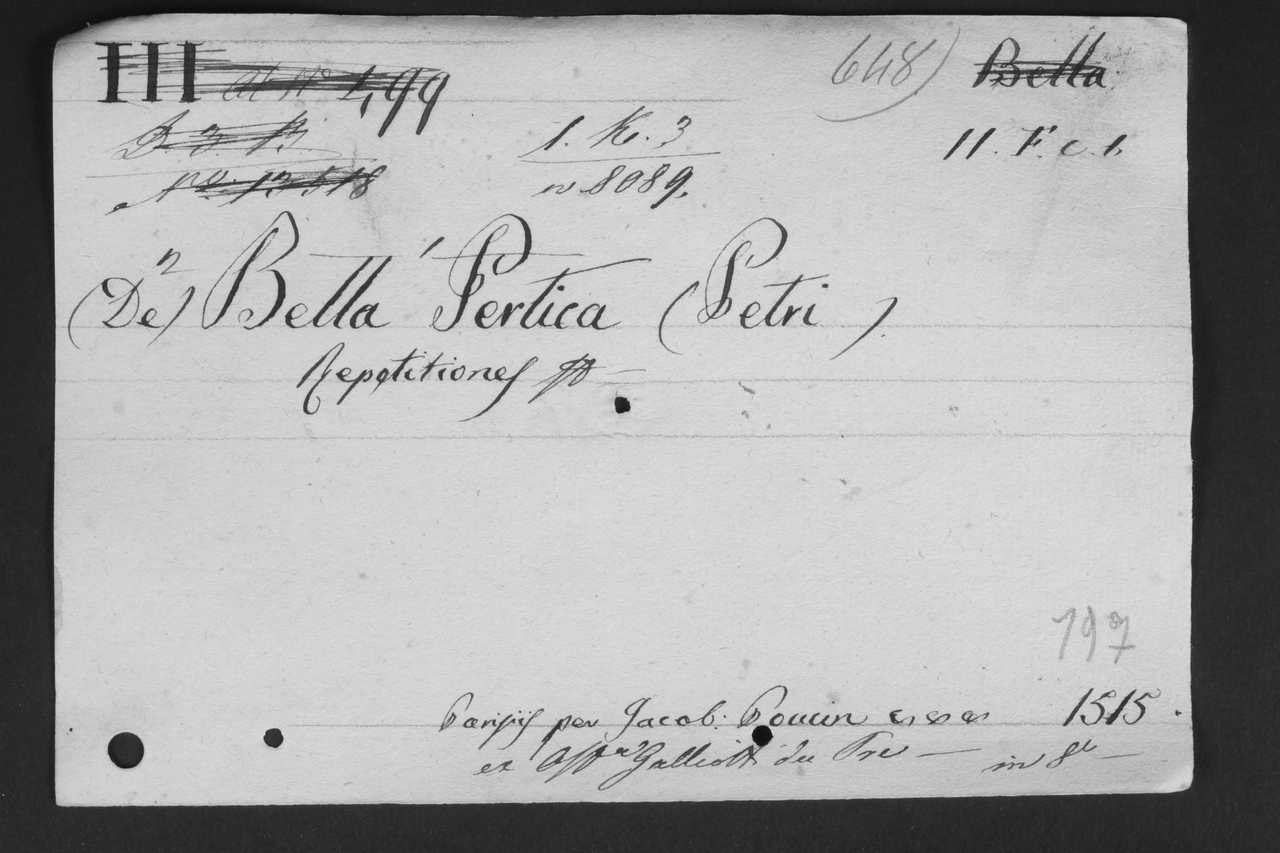 III 499 648) Bella
D. 3. B. 1. K. 3 11. F. c. 1.
No. 13518 n 8089.
(De) Bella Pertica (Petri).
Repetitiones
797
Parisiis per Jacob: Poucin 1515.
et Galliott du Pre — in 8º —